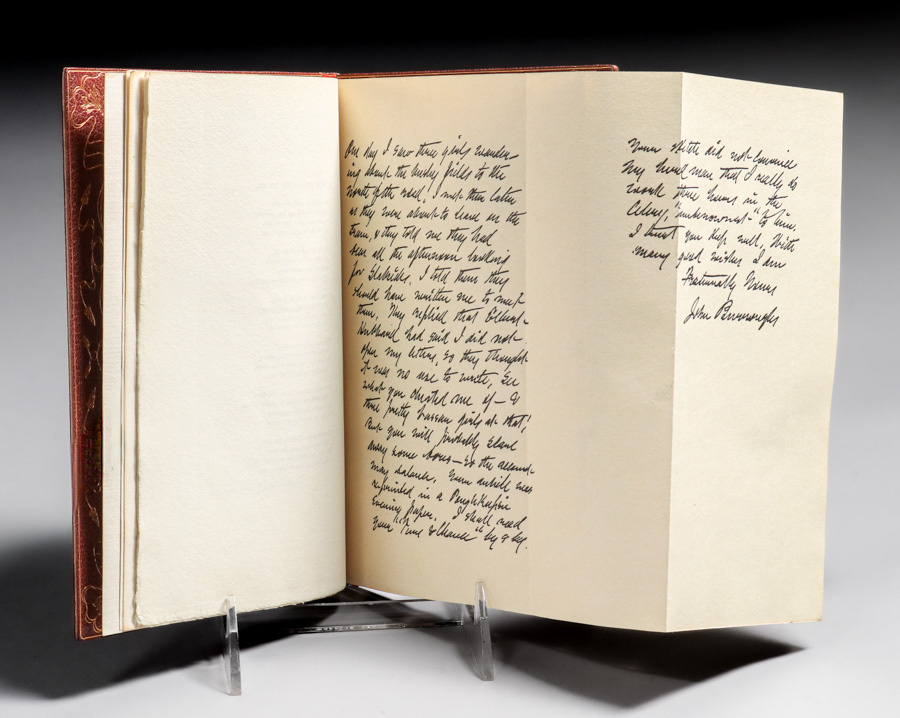 One day I saw three girls wander-
ing about the fields to the
north of the road. I met them later
as they were about to leave on the
train, & they told me they had
been all the afternoon looking
for Slabsides. I told them they
should have written me to meet
them. They replied that Elbert
Hubbard had said I did not
open my letters, so they thought
it was no use to write, See
what you cheated me of — &
three pretty Vassar girls at that!
But you will probably scare
away some bores — so the account
may balance. Your article was
reprinted in a Poughkeepsie
Evening paper. I shall read
your "Time & Chance" by & by.
Your sketch did not convince
my hired man that I really do
work three hours in the
Celery, "unbeknownst" to him.
I trust you keep well, With
many good wishes I am
Fraternally Yours
John Burroughs